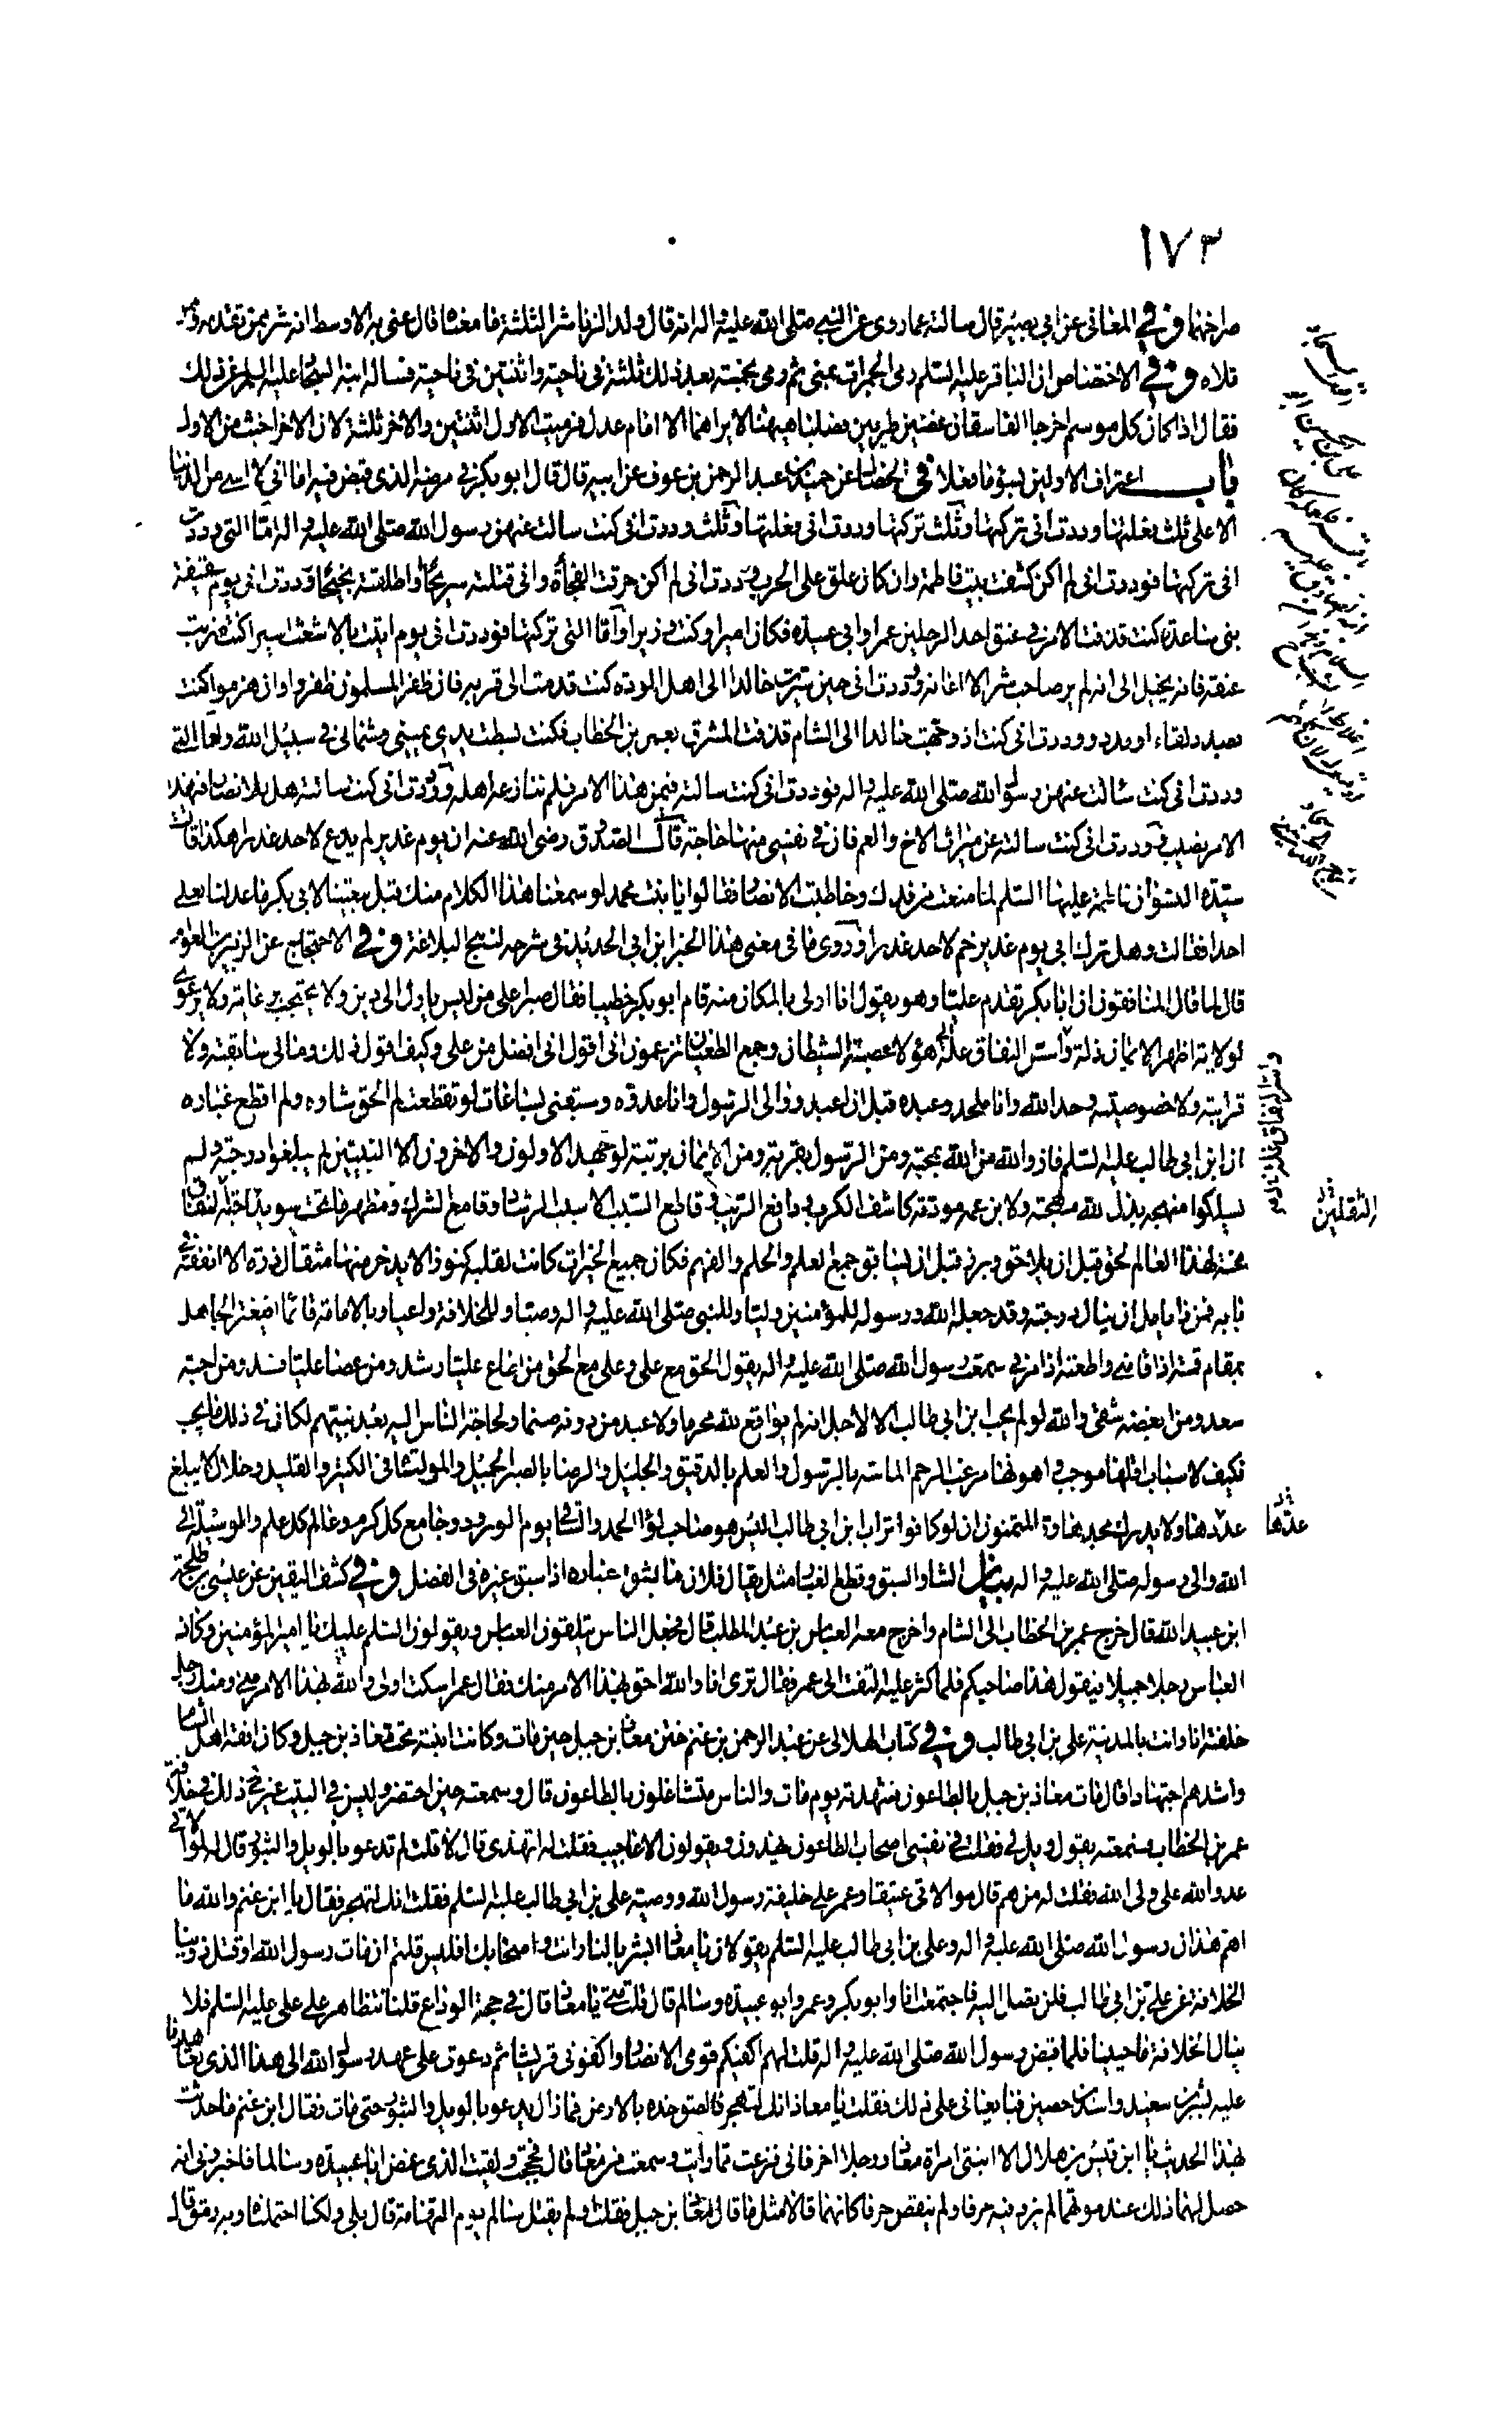 ١٧٣
صاخبها وفي المعانی عن ابی بصیر قال سالته عما روی عن النبی صلی الله علیه واله انه قال ولد الزنا شر الثلثة ما معناه قال عنی به الاوسط انه شر ممن تقدمه وممن
تلاه وفي الاختصاص ان الباقر علیه السلم رمی الجمرات بمنی ثم رمی بخمسة بعد ذلك ثلثة فی ناحیة واثنتین فی ناحیة فساله علیه السلم عن ذلك
فقال اذا كان كل موسم اخرجا الفاسقان غضین طریین فصلبا هیهنا لا یراهما الا امام عدل فرمیت الاول اثنتین والاخر ثلثة لان الاخر اخبث من الاول
باب اعتراف الاولین بسوء ما فعلا فی الخصال عن حمید بن عبد الرحمن بن عوف عن ابیه قال قال ابو بكر فی مرضه الذی قبض فیه اما انی لا اسی من الدنیا
الا علی ثلث فعلتها وددت انی تركتها وثلث تركتها وددت انی فعلتها وثلث وددت انی كنت سالت عنهن رسول الله صلی الله علیه واله اما التی وددت
انی تركتها فوددت انی لم اكن كشفت بیت فاطمة وان كان علق علی الحرب ووددت انی لم اكن حرقت الفجأة وانی قتلته سریحا او اطلقته نجیحا ووددت انی یوم سقیفة
بنی ساعدة كنت قذفت الامر فی عنق احد الرجلین عمر او ابی عبیدة فكان امیرا وكنت وزیرا واما التی تركتها فوددت انی یوم اتیت بالاشعث اسیرا كنت ضربت
عنقه فانه یخیل الی انه لم یر صاحب شر الا اعانه ووددت انی حین سیرت خالدا الی اهل الردة كنت قدمت الی قریة فان ظفر المسلمون ظفروا وان هزموا كنت
بصدد لقاء او مدد ووددت انی كنت اذ وجهت خالدا الی الشام قذفت المشرق بعمر بن الخطاب فكنت بسطت یدی یمینی وشمالی فی سبیل الله واما التی
وددت انی كنت سالت عنهن رسول الله صلی الله علیه واله فوددت انی كنت سالته فیمن هذا الامر فلم ننازعه اهله ووددت انی كنت سالته هل للانصار فی هذا
الامر نصیب ووددت انی كنت سالته عن میراث الاخ والعم فان فی نفسی منها حاجة قال الصدوق رضی الله عنه ان یوم غدیر لم یدع لاحد عذرا هكذا قالت
سیدة النسوان فاطمة علیها السلم لما منعت من فدك وخاطبت الانصار فقالوا یا بنت محمد لو سمعنا هذا الكلام منك قبل بیعتنا لابی بكر ما عدلنا بعلی
احدا فقالت وهل ترك ابی یوم غدیر خم لاحد عذرا وروی ما فی معنی هذا الخبر ابن ابی الحدید فی شرحه لنهج البلاغة وفي الاحتجاج عن الزبیر بن العوام
قال لما قال المنافقون ان ابا بكر تقدم علیا وهو یقول انا اولی بالمكان منه قام ابو بكر خطیبا فقال صبرا علی من لیس یاول الی دین ولا یحتجب برعایة ولا یرعوی
لولایة اظهر الایمان ذلة واستر النفاق علة هؤلاء عصبة الشیطان وجمع الطغیان تزعمون انی اقول انی افضل من علی وكیف اقول ذلك ومالی سابقته ولا
قرابته ولا خصوصیته وحد الله وانا ملحد وعبده قبل ان اعبد ووالی الرسول وانا عدوه وسبقنی بساعات لو تقطعت لم الحق شاوه ولم اقطع غباره
ان ابن ابی طالب علیه السلم فاز والله من الله بمحبة ومن الرسول بقربة ومن الایمان برتبة لو جهد الاولون والاخرون الا النبیین لم یبلغوا درجته ولم
یسلكوا منهجه بذل لله مهجته ولابن عمه مودته كاشف الكرب ودافع الریب وقاطع السبب الا سبب الرشاد وقامع الشرك ومظهر ما تحت سویداء حبة النفاق
محنة لهذا العالم لحق قبل ان یلاحق وبرز قبل ان یسابق جمع العلم والحلم والفهم فكان جمیع الخیرات كانت لقلبه كنوزا لا یدخر منها مثقال ذرة الا انفقه فی
بابه فمن ذا یامل ان ینال درجته وقد جعله الله ورسوله للمؤمنین ولیا وللنبی صلی الله علیه واله وصیا وللخلافة واعیا وبالامامة قائما ایغتر الجاهل
بمقام قمته اذا قامنی واطعته اذا امرنی سمعت رسول الله صلی الله علیه واله یقول الحق مع علی وعلی مع الحق من اطاع علیا رشد ومن عصا علیا فسد ومن احبه
سعد ومن ابغضه شقی والله لو لم یحب ابن ابی طالب الا لاجل انه لم یواقع لله محرما ولا عبد من دونه صنما ولحاجة الناس الیه بعد نبیهم لكان فی ذلك ما یجب
فكیف لاسباب اقلها موجب واهونها مرغب الرحم الماسة بالرسول والعلم بالدقیق والجلیل والرضا بالصبر الجمیل والمواساة فی الكثیر والقلیل وخلال لا یبلغ
عدها ولا یدرك مجدها ود المتمنون ان لو كانوا تراب ابن ابی طالب الیس هو صاحب لواء الحمد والساقی یوم الورود وجامع كل كرم وعالم كل علم والوسیلة الی
الله والی رسوله صلی الله علیه واله بیان الشاو السبق وقطع الغبار مثل یقال فلان ما یشق غباره اذا سبق غیره فی الفضل وفي كشف الیقین عن عیسی بن طلحة
ابن عبید الله قال خرج عمر بن الخطاب الی الشام واخرج معه العباس بن عبد المطلب قال فجعل الناس یتلقون العباس ویقولون السلم علیك یا امیر المؤمنین وكان
العباس رجلا جمیلا فیقول هذا صاحبكم فلما كثر علیه التفت الی عمر فقال تری انا والله احق بهذا الامر منك فقال عمر اسكت اولی والله بهذا الامر منی ومنك رجل
خلفته انا وانت بالمدینة علی بن ابی طالب وفي كتاب الهلالی عن عبد الرحمن بن غنم ختن معاذ بن جبل حین مات وكانت ابنته تحت معاذ بن جبل وكان افقه اهل الشام
واشدهم اجتهادا قال مات معاذ بن جبل بالطاعون فشهدته یوم مات والناس متشاغلون بالطاعون قال وسمعته حین احتضر ولیس فی البیت غیری وذلك فی خلافة
عمر بن الخطاب وسمعته یقول ویل لی فقلت فی نفسی اصحاب الطاعون یهذون ویقولون الاعاجیب فقلت له اتهذی قال لا قلت لم تدعو بالویل والثبور قال لموالاتی
عدو الله علی ولی الله فقلت له من هم قال موالاتی عتیقا وعمر علی خلیفة رسول الله ووصیه علی بن ابی طالب علیه السلم فقلت انك لتهجر فقال یا ابن غنم والله ما
اهجر هذان رسول الله صلی الله علیه واله وعلی بن ابی طالب علیه السلم یقولان یا معاذ ابشر بالنار انت واصحابك افلیس قلتم ان مات رسول الله او قتل زوینا
الخلافة عن علی بن ابی طالب فلن یصل الیه فاجتمعت انا وابو بكر وعمر وابو عبیدة وسالم قال قلت متی یا معاذ قال فی حجة الوداع قلنا نتظاهر علی علی علیه السلم فلا
ینال الخلافة ما حیینا فلما قبض رسول الله صلی الله علیه واله قلت لهم اكفیكم قومی الانصار واكفونی قریشا ثم دعوت علی عهد رسول الله الی هذا الذی تعاهدنا
علیه بشیر بن سعید واسید بن حصین فبایعانی علی ذلك فقلت یا معاذ انك لتهجر فالصق خده بالارض فما زال یدعو بالویل والثبور حتی مات فقال ابن غنم ما حدثت
بهذا الحدیث یا ابن قیس بن هلال الا ابنتی امراة معاذ ورجلا اخر فانی فزعت مما رایت وسمعت من معاذ قال فحججت ولقیت الذی غمض ابا عبیدة وسالما فاخبرنی انه
حصل لهما ذلك عند موتهما لم یزد فیه حرفا ولم ینقص حرفا كانهما قالا مثل ما قال معاذ بن جبل فقلت ولم یقتل سالم یوم التهامة قال بلی ولكنا احتملناه وبه رمق قال
واستر النفاق قلة
الثقلین
عدها